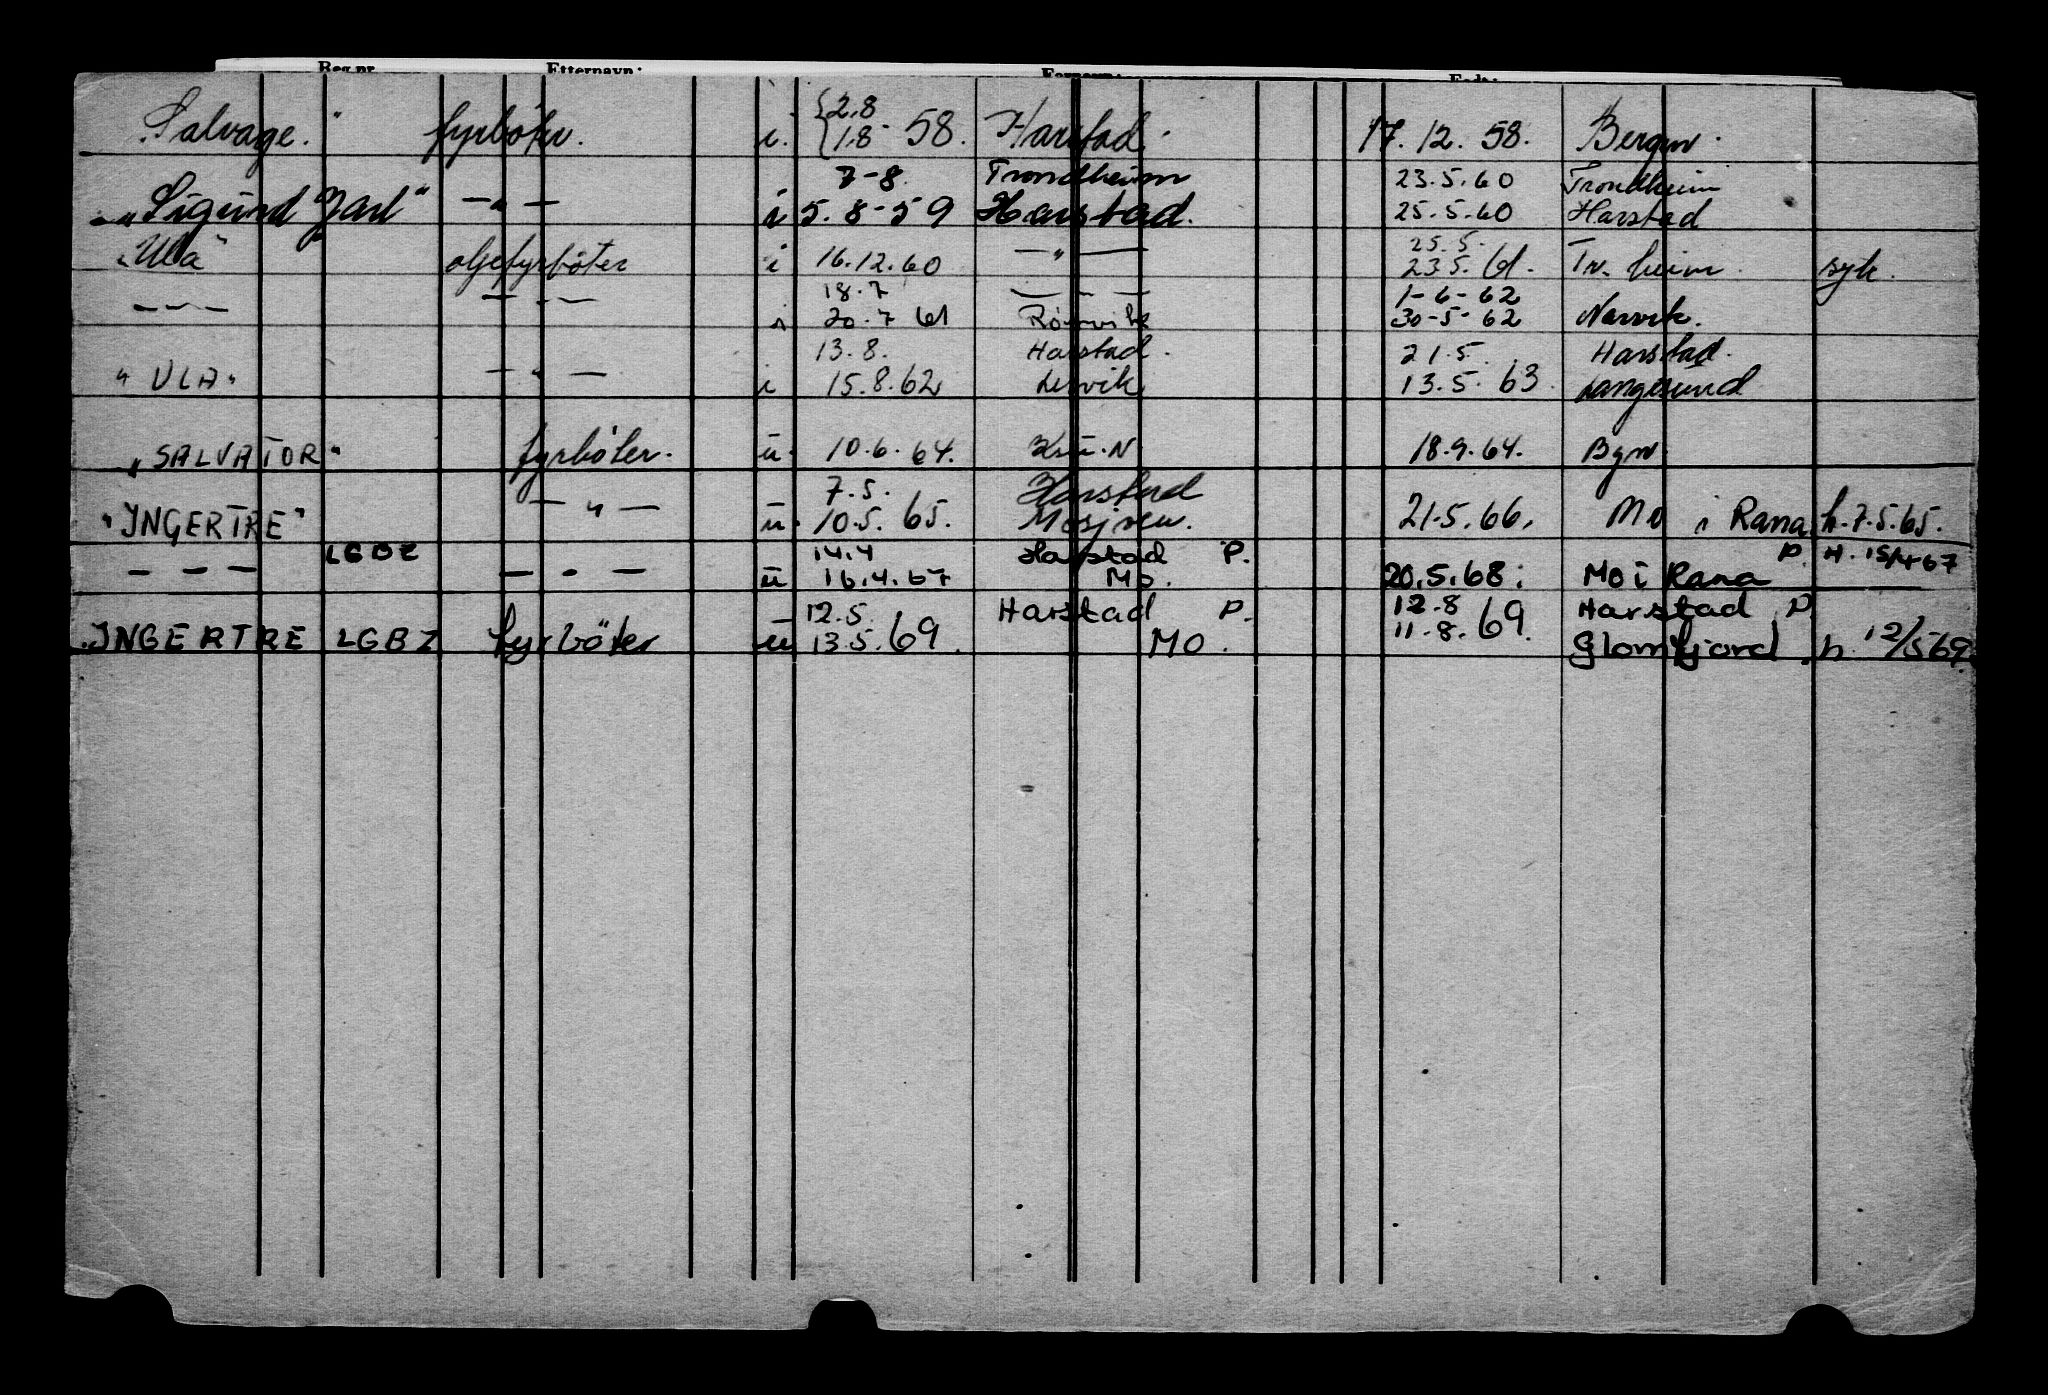 Reg.nr. Etternavn: Fornavn: Født:
2.8
"Salvage." fyrbøter. i. 1.8 58. Harstad. 17. 12. 58. Bergen.
7-8. Trondheim 23.5.60 Trondheim
"Sigurd Jarl" —„— i 5.8-59 Harstad. 25.5.60 Harstad
25.5.
"Ula" oljefyrbøter i 16.12.60 —„— 23.5.61. Tr. heim. syk.
18.7 —„— 1-6-62
—„— —„— i 20.7 61 Rørvik 30-5-62 Narvik.
13.8. Harstad. 21.5. Harstad.
"ULA" —„— i 15.8.62 Lervik 13.5.63. Langesund
"SALVATOR" fyrbøter. u. 10.6.64. Kr.u.N. 18.9.64. Bgn.
7.5. Harstad
"INGERTRE" —„— u. 10.5.65. Mosjøen. 21.5.66. Mo i Rana h.7.5.65.
LGBZ 14.4 Harstad P. P. H. 15/4-67
— — — — - — u 16.4.67 Mo. 20.5.68. Mo i Rana
12.5. Harstad P. 12.8 Harstad P.
INGERTRE LGBZ fyrbøter u 13.5.69. MO. 11.8.69. Glomfjord. h. 12/5 69.